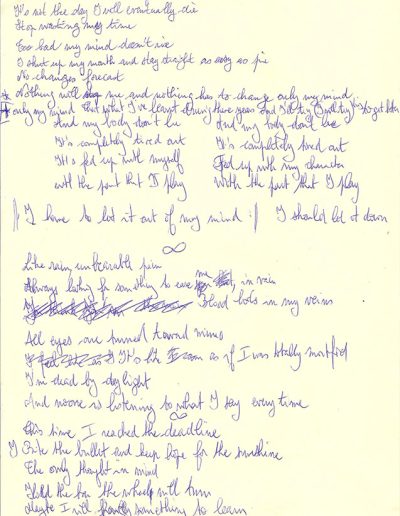 It's not the day I will eventually die
Stop wasting my time
Too bad my mind doesn't
I shut up my mouth and stay straight as easy as pie
No changes forecast
Nothing will me and nothing has to change only my mind
only my mind But what I've learnt during these years and I'll try
And my body don't lie And my body don't lie
It's completely tired out It's completely tired out
It's fed up with myself Fed up with my character
with the part that I play With the part that I play
I have to let it out of my mind I should let it down
∞
Like rain unbearable pain
Always looking for something to me in vain
Blood in my veins
All eyes are turned toward mine
as if I was totally
I'm dead by daylight
And no one is listening to what I say every time
∞
This time I reached the deadline
I bite the bullet and keep hope for the sunshine
The only thought in mind
Hold the the wheel will turn
Maybe I will something to learn